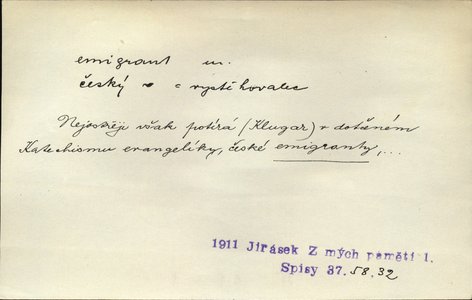 emigrant m.
český e = vystěhovalec
Nejostřeji však potírá (Klugar) v dotčeném
Katechismu evangelíky, české emigranty, ...
1911 Jirásek Z mých pamětí 1.
Spisy 37. 58. 32